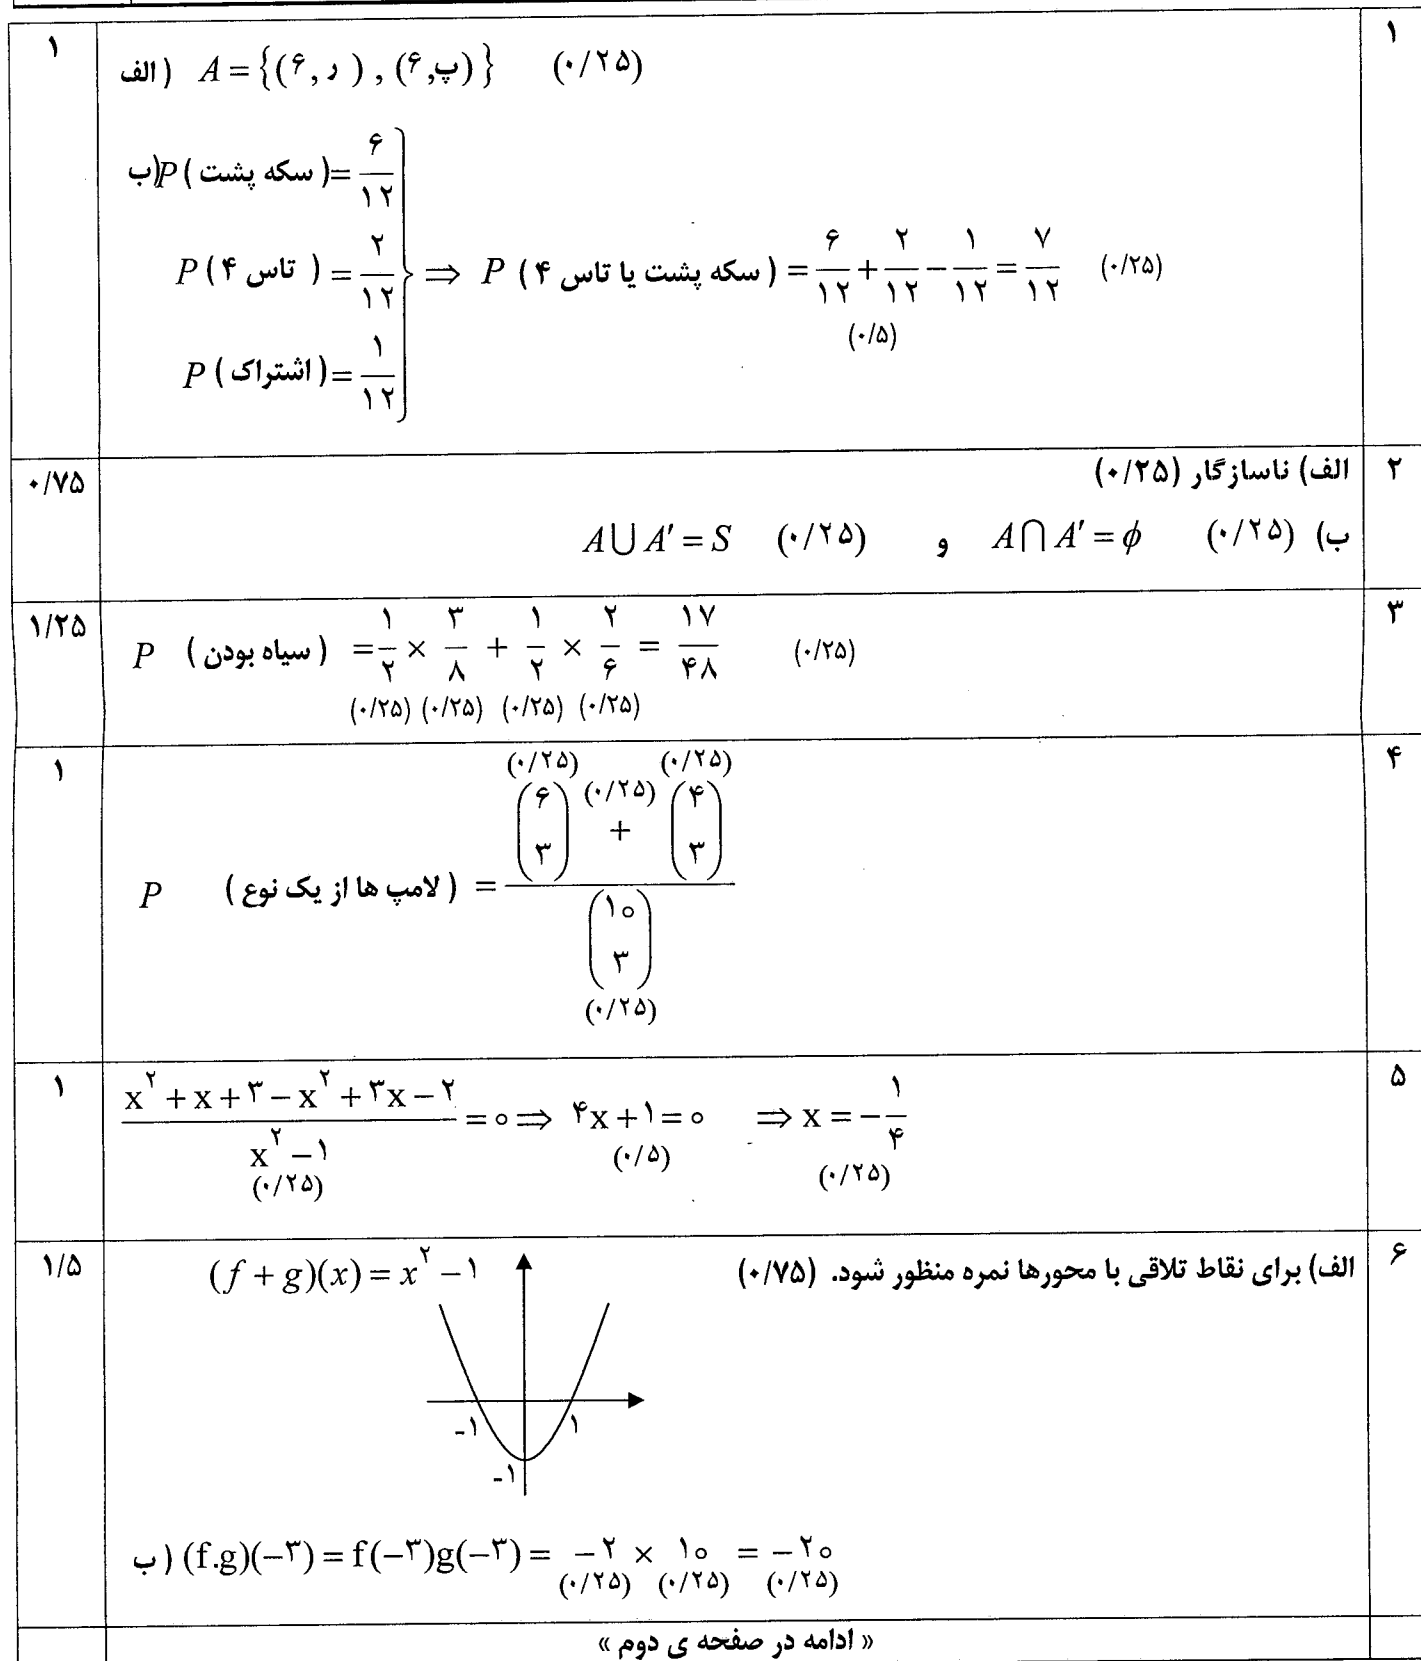 ۱
۱
الف) A = {(۶, ر), (۶, پ)} (۰/۲۵)
ب) P(سکه پشت) = ۶/۱۲
P(تاس ۴) = ۲/۱۲ ⇒ P(سکه پشت یا تاس ۴) = ۶/۱۲ + ۲/۱۲ − ۱/۱۲ = ۷/۱۲ (۰/۲۵)
(۰/۵)
P(اشتراک) = ۱/۱۲
۲
۰/۷۵
الف) ناسازگار (۰/۲۵)
ب) (۰/۲۵) A∩A′ = ϕ و (۰/۲۵) A∪A′ = S
۳
۱/۲۵
P (سیاه بودن) = ۱/۲ × ۳/۸ + ۱/۲ × ۲/۶ = ۱۷/۴۸ (۰/۲۵)
(۰/۲۵) (۰/۲۵) (۰/۲۵) (۰/۲۵)
۴
۱
(۰/۲۵) (۰/۲۵) (۰/۲۵)
P (لامپ ها از یک نوع) = ((۶ ۳) + (۴ ۳)) / (۱۰ ۳)
(۰/۲۵)
۵
۱
(x^۲ + x + ۳ − x^۲ + ۳x − ۲)/(x^۲ − ۱) = ۰ ⇒ ۴x + ۱ = ۰ ⇒ x = −۱/۴
(۰/۲۵) (۰/۵) (۰/۲۵)
۶
۱/۵
الف) برای نقاط تلاقی با محورها نمره منظور شود. (۰/۷۵)
(f + g)(x) = x^۲ − ۱
-۱ ۱
-۱
ب) (f.g)(−۳) = f(−۳)g(−۳) = −۲ × ۱۰ = −۲۰
(۰/۲۵) (۰/۲۵) (۰/۲۵)
« ادامه در صفحه ی دوم »